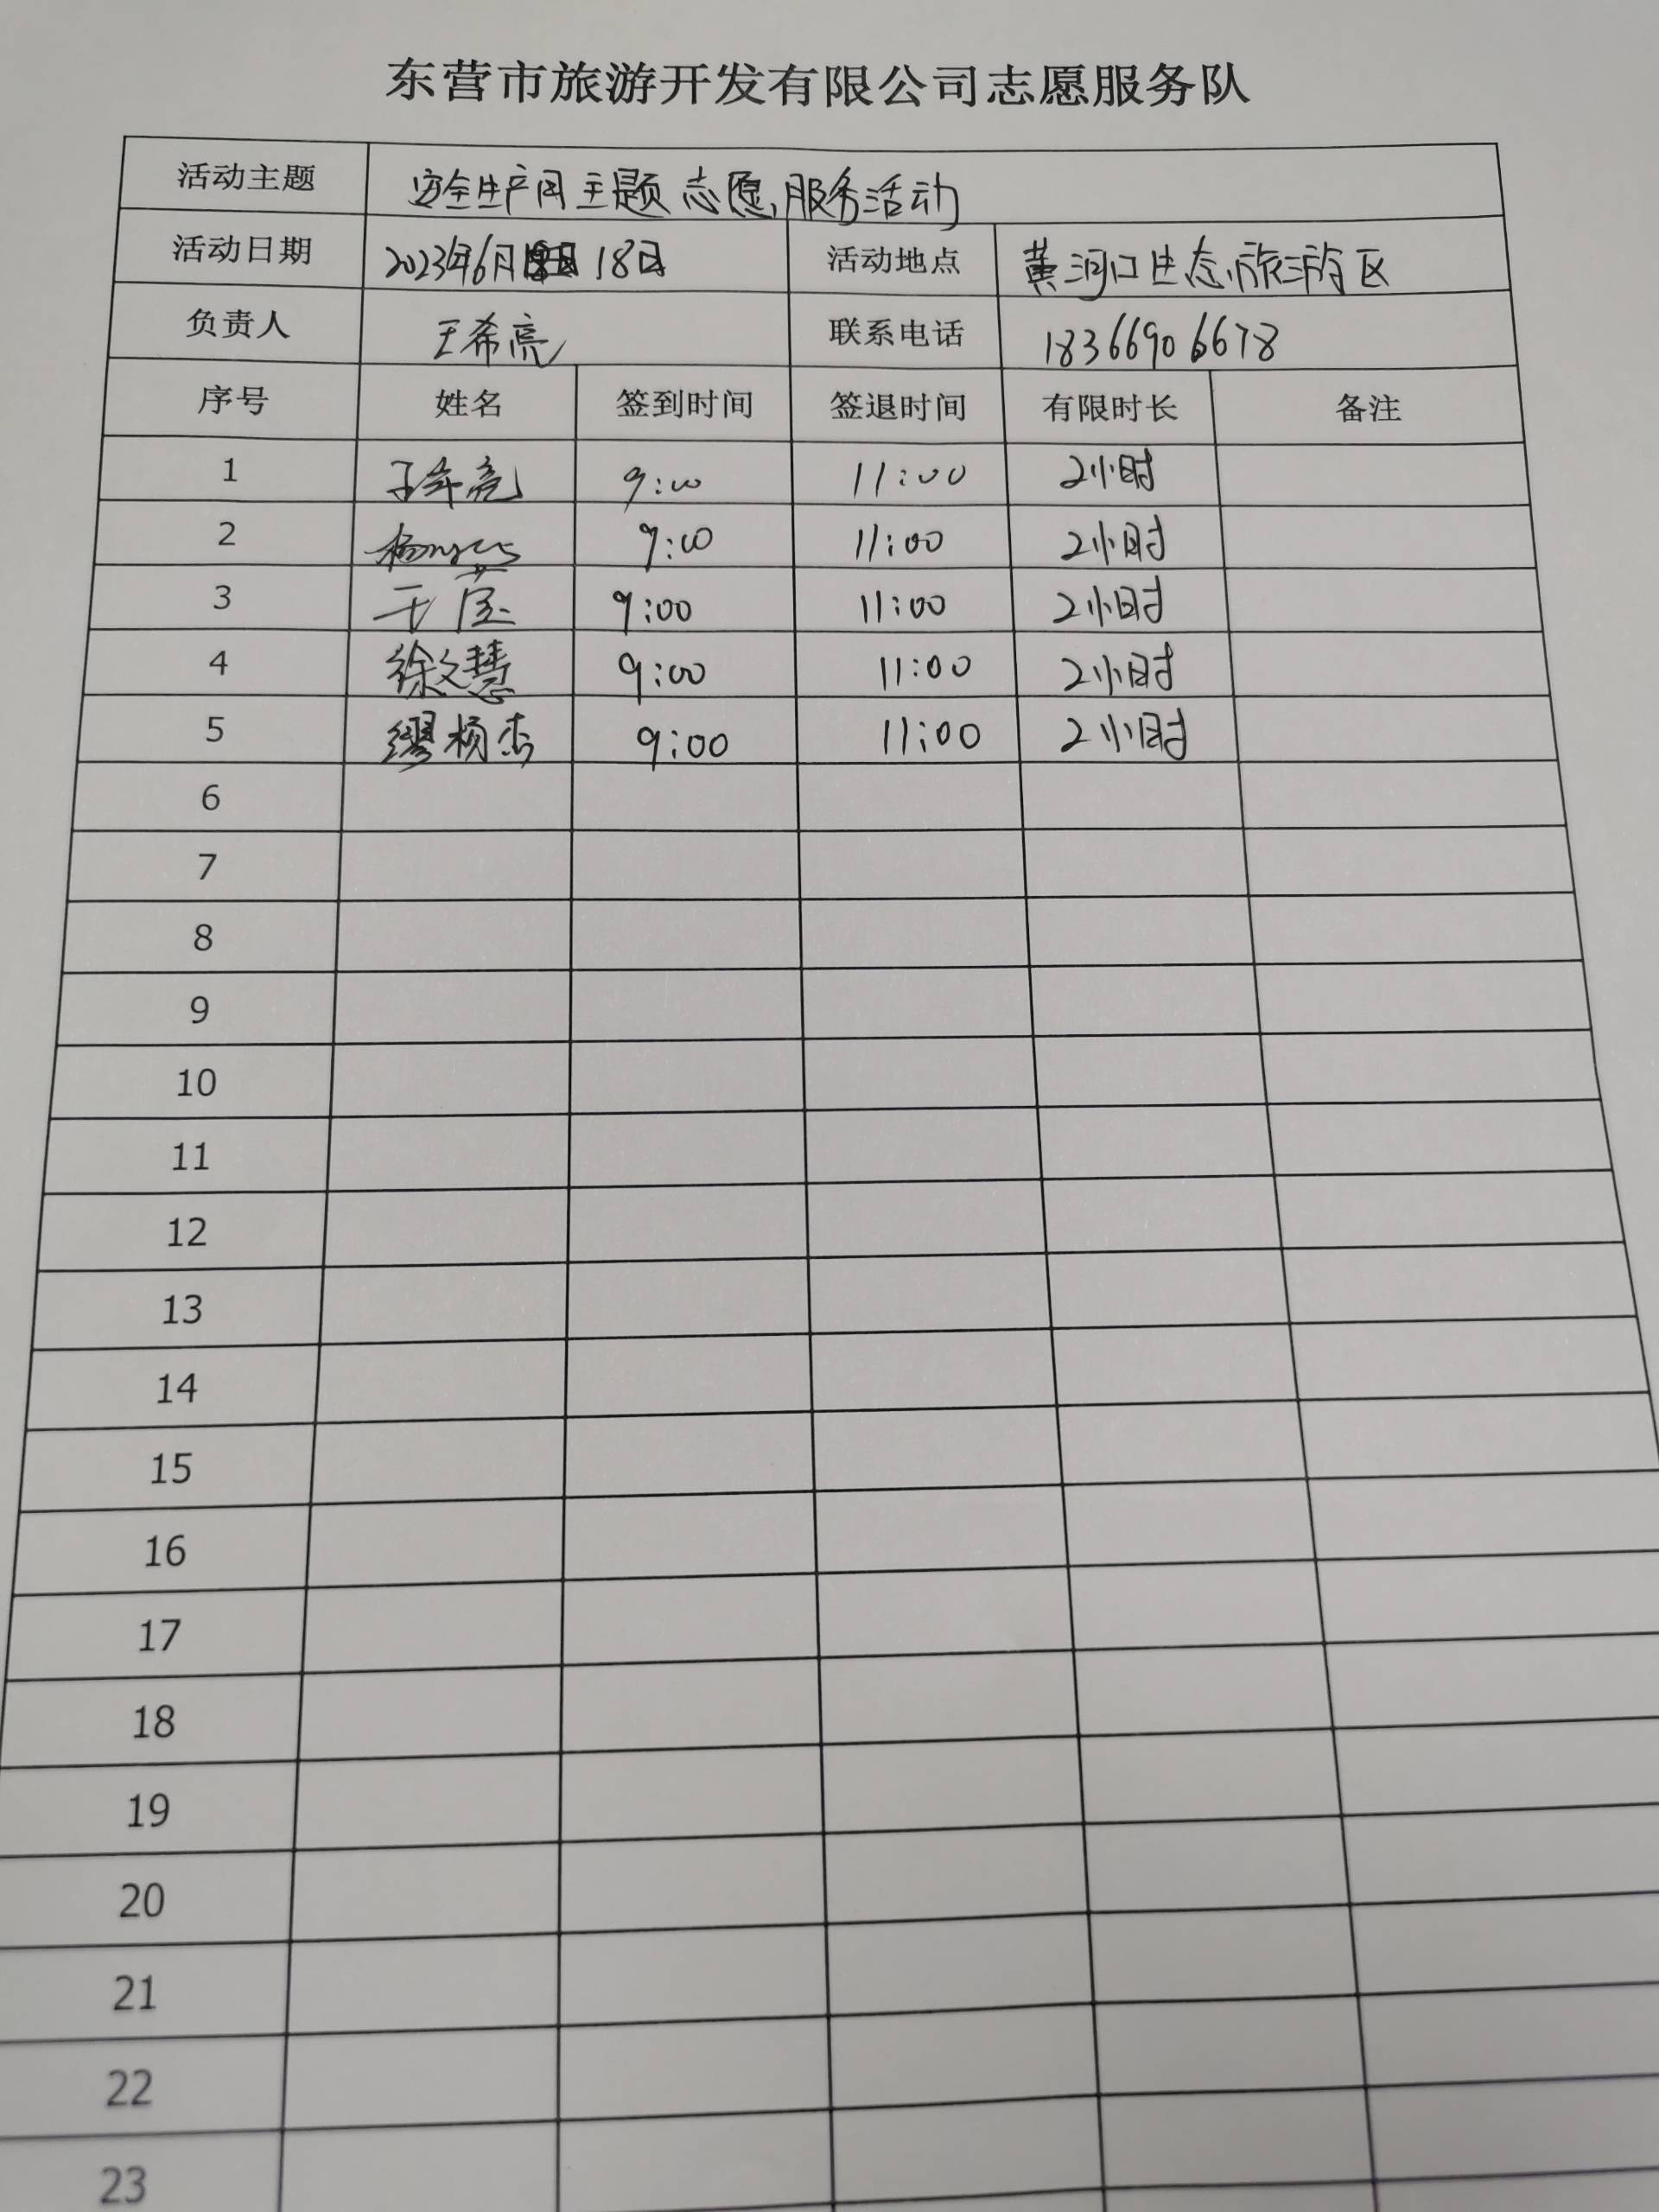 东营市旅游开发有限公司志愿服务队
活动主题 安全生产月主题志愿服务活动
活动日期 2023年6月18日 活动地点 黄河口生态旅游区
负责人 王希亮 联系电话 18366906678
序号 姓名 签到时间 签退时间 有限时长 备注
1 9:00 11:00 2小时
2 9:00 11:00 2小时
3 9:00 11:00 2小时
4 徐文慧 9:00 11:00 2小时
5 缪杨杰 9:00 11:00 2小时
6
7
8
9
10
11
12
13
14
15
16
17
18
19
20
21
22
23